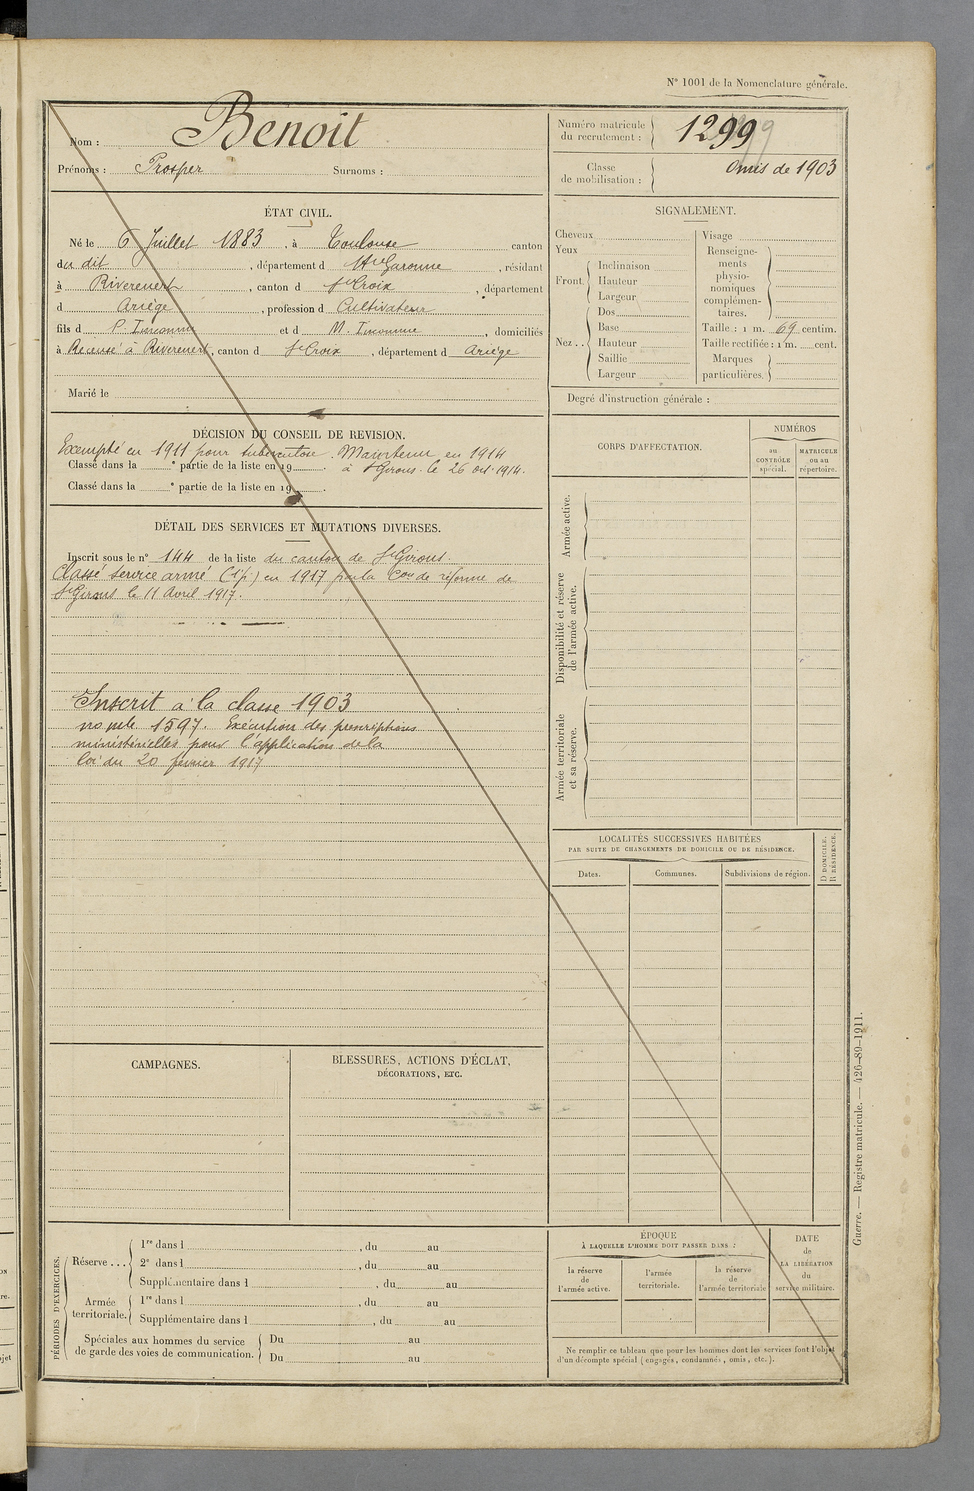 N° 1001 de la Nomenclature générale.
Nom : Benoit
Prénoms : Prosper Surnoms :
Numéro matricule du recrutement : 1299
Classe de mobilisation : Omis de 1903
ÉTAT CIVIL.
Né le 6 Juillet 1883, à Toulouse canton
du dit, département d Hte Garonne, résidant
à Riverenert, canton d St Croix, département
d Ariège, profession d Cultivateur
fils d P. Inconnu et d M. Inconnue, domiciliés
à Recensé à Riverenert, canton d St Croix, département d Ariège
Marié le
SIGNALEMENT.
Cheveux
Yeux
Front. Inclinaison
Hauteur
Largeur
Nez.. Dos
Base
Hauteur
Saillie
Largeur
Visage
Renseigne-
ments
physio-
nomiques
complémen-
taires.
Taille : 1 m. 69 centim.
Taille rectifiée : 1 m. cent.
Marques
particulières.
Degré d'instruction générale :
DÉCISION DU CONSEIL DE REVISION.
Exempté en 1911 pour tuberculose. Maintenu en 1914
Classé dans la e partie de la liste en 19 . à St Girons le 26 oct. 1914.
Classé dans la e partie de la liste en 19 .
DÉTAIL DES SERVICES ET MUTATIONS DIVERSES.
Inscrit sous le n° 144 de la liste du canton de St Girons.
Classé service armé (1 p) en 1917 par la Con de réforme de
St Girons le 11 Avril 1917.
Inscrit à la classe 1903
no mle 1597. Exécution des prescriptions
ministérielles pour l'application de la
loi du 20 février 1917
CORPS D'AFFECTATION.
NUMÉROS
au CONTRÔLE spécial.
MATRICULE ou au répertoire.
Armée active.
Disponibilité et réserve de l'armée active.
Armée territoriale et sa réserve.
LOCALITÉS SUCCESSIVES HABITÉES
PAR SUITE DE CHANGEMENTS DE DOMICILE OU DE RÉSIDENCE.
Dates. Communes. Subdivisions de région.
D DOMICILE.
R RÉSIDENCE.
CAMPAGNES.
BLESSURES, ACTIONS D'ÉCLAT,
DÉCORATIONS, ETC.
PÉRIODES D'EXERCICES.
Réserve... 1re dans l , du au
2e dans l , du au
Supplémentaire dans l , du au
Armée territoriale. 1re dans l , du au
Supplémentaire dans l , du au
Spéciales aux hommes du service
de garde des voies de communication. Du au
Du au
ÉPOQUE
À LAQUELLE L'HOMME DOIT PASSER DANS :
la réserve de l'armée active.
l'armée territoriale.
la réserve de l'armée territoriale
DATE
de
LA LIBÉRATION
du
service militaire.
Ne remplir ce tableau que pour les hommes dont les services font l'objet
d'un décompte spécial (engagés, condamnés, omis, etc.).
Guerre. — Registre matricule. — 426-89-1911.